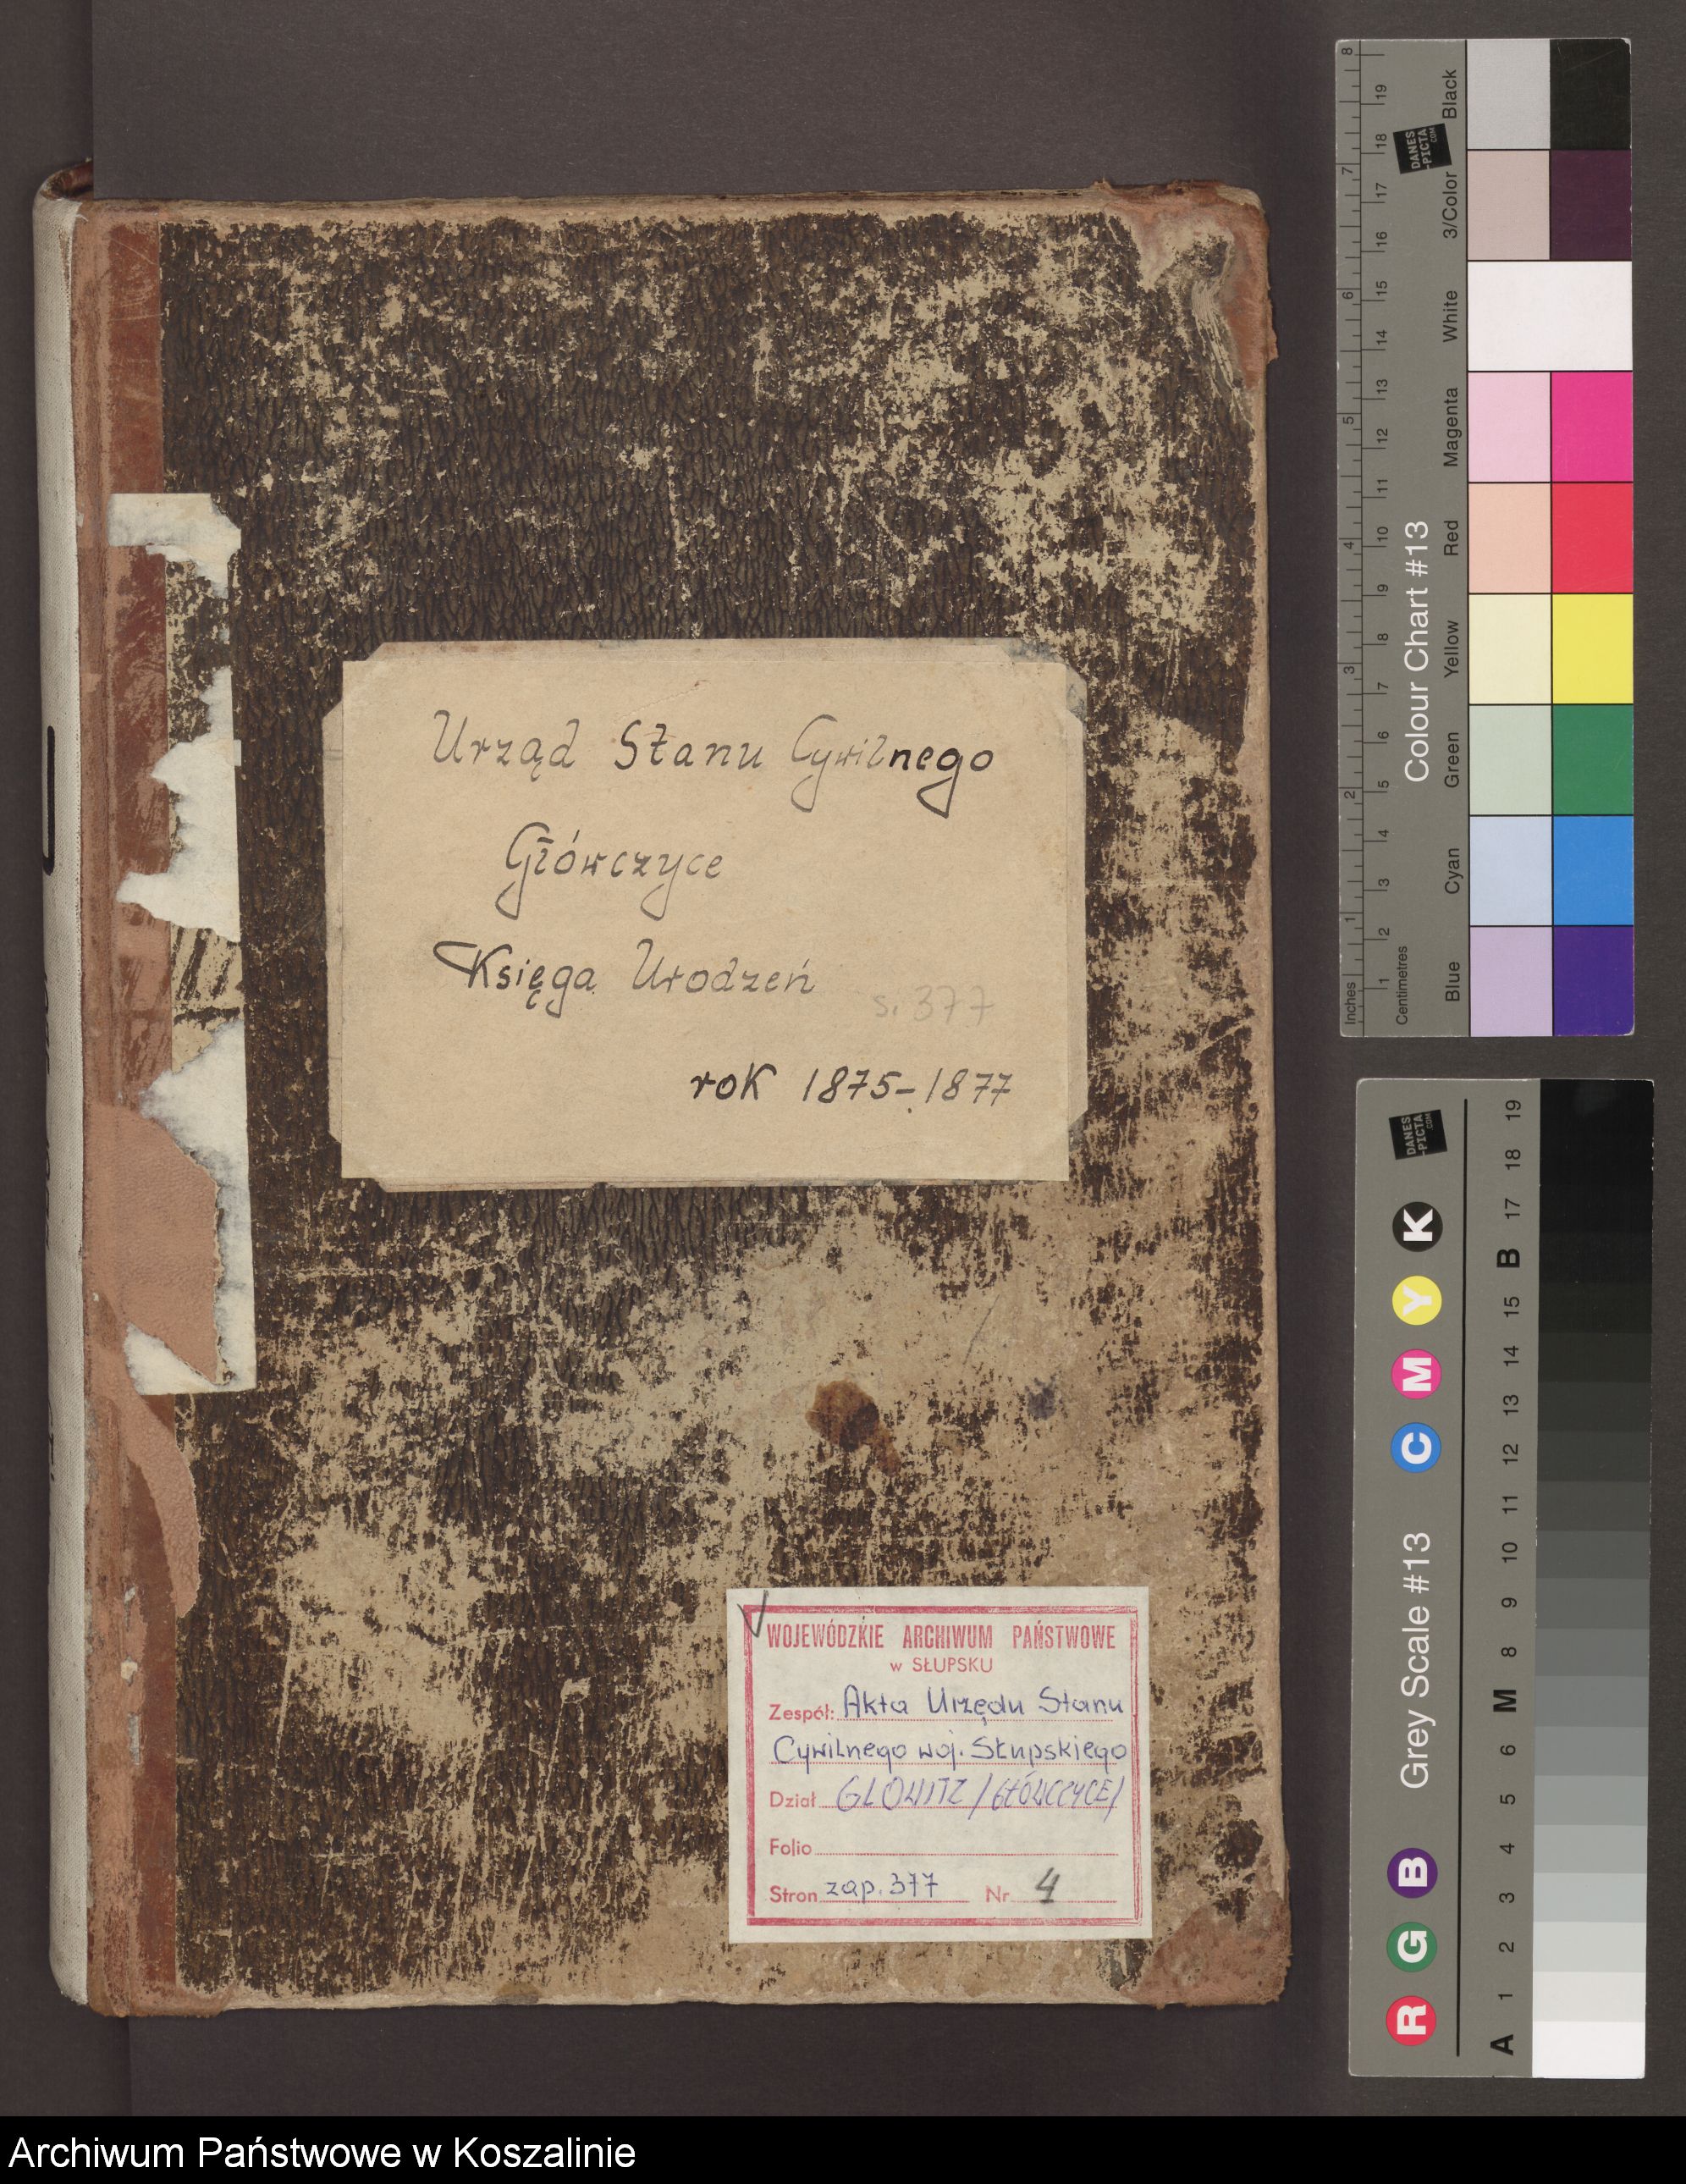 Urząd Stanu Cywilnego
Główczyce
Księga Urodzeń
s. 377
rok 1875-1877
WOJEWÓDZKIE ARCHIWUM PAŃSTWOWE
w SŁUPSKU
Zespół: Akta Urzędu Stanu
Cywilnego woj. Słupskiego
Dział GLOWITZ /GŁÓWCZYCE/
Folio
Stron zap. 377 Nr 4
Inches
Centimetres
Colour Chart #13
Blue Cyan Green Yellow Red Magenta White 3/Color Black
DANES
-PICTA
.COM
1 2 3 4 5 6 7 8
1 2 3 4 5 6 7 8 9 10 11 12 13 14 15 16 17 18 19
R G B Grey Scale #13 C M Y K
DANES
-PICTA
.COM
A 1 2 3 4 5 6 M 8 9 10 11 12 13 14 15 B 17 18 19
Archiwum Państwowe w Koszalinie